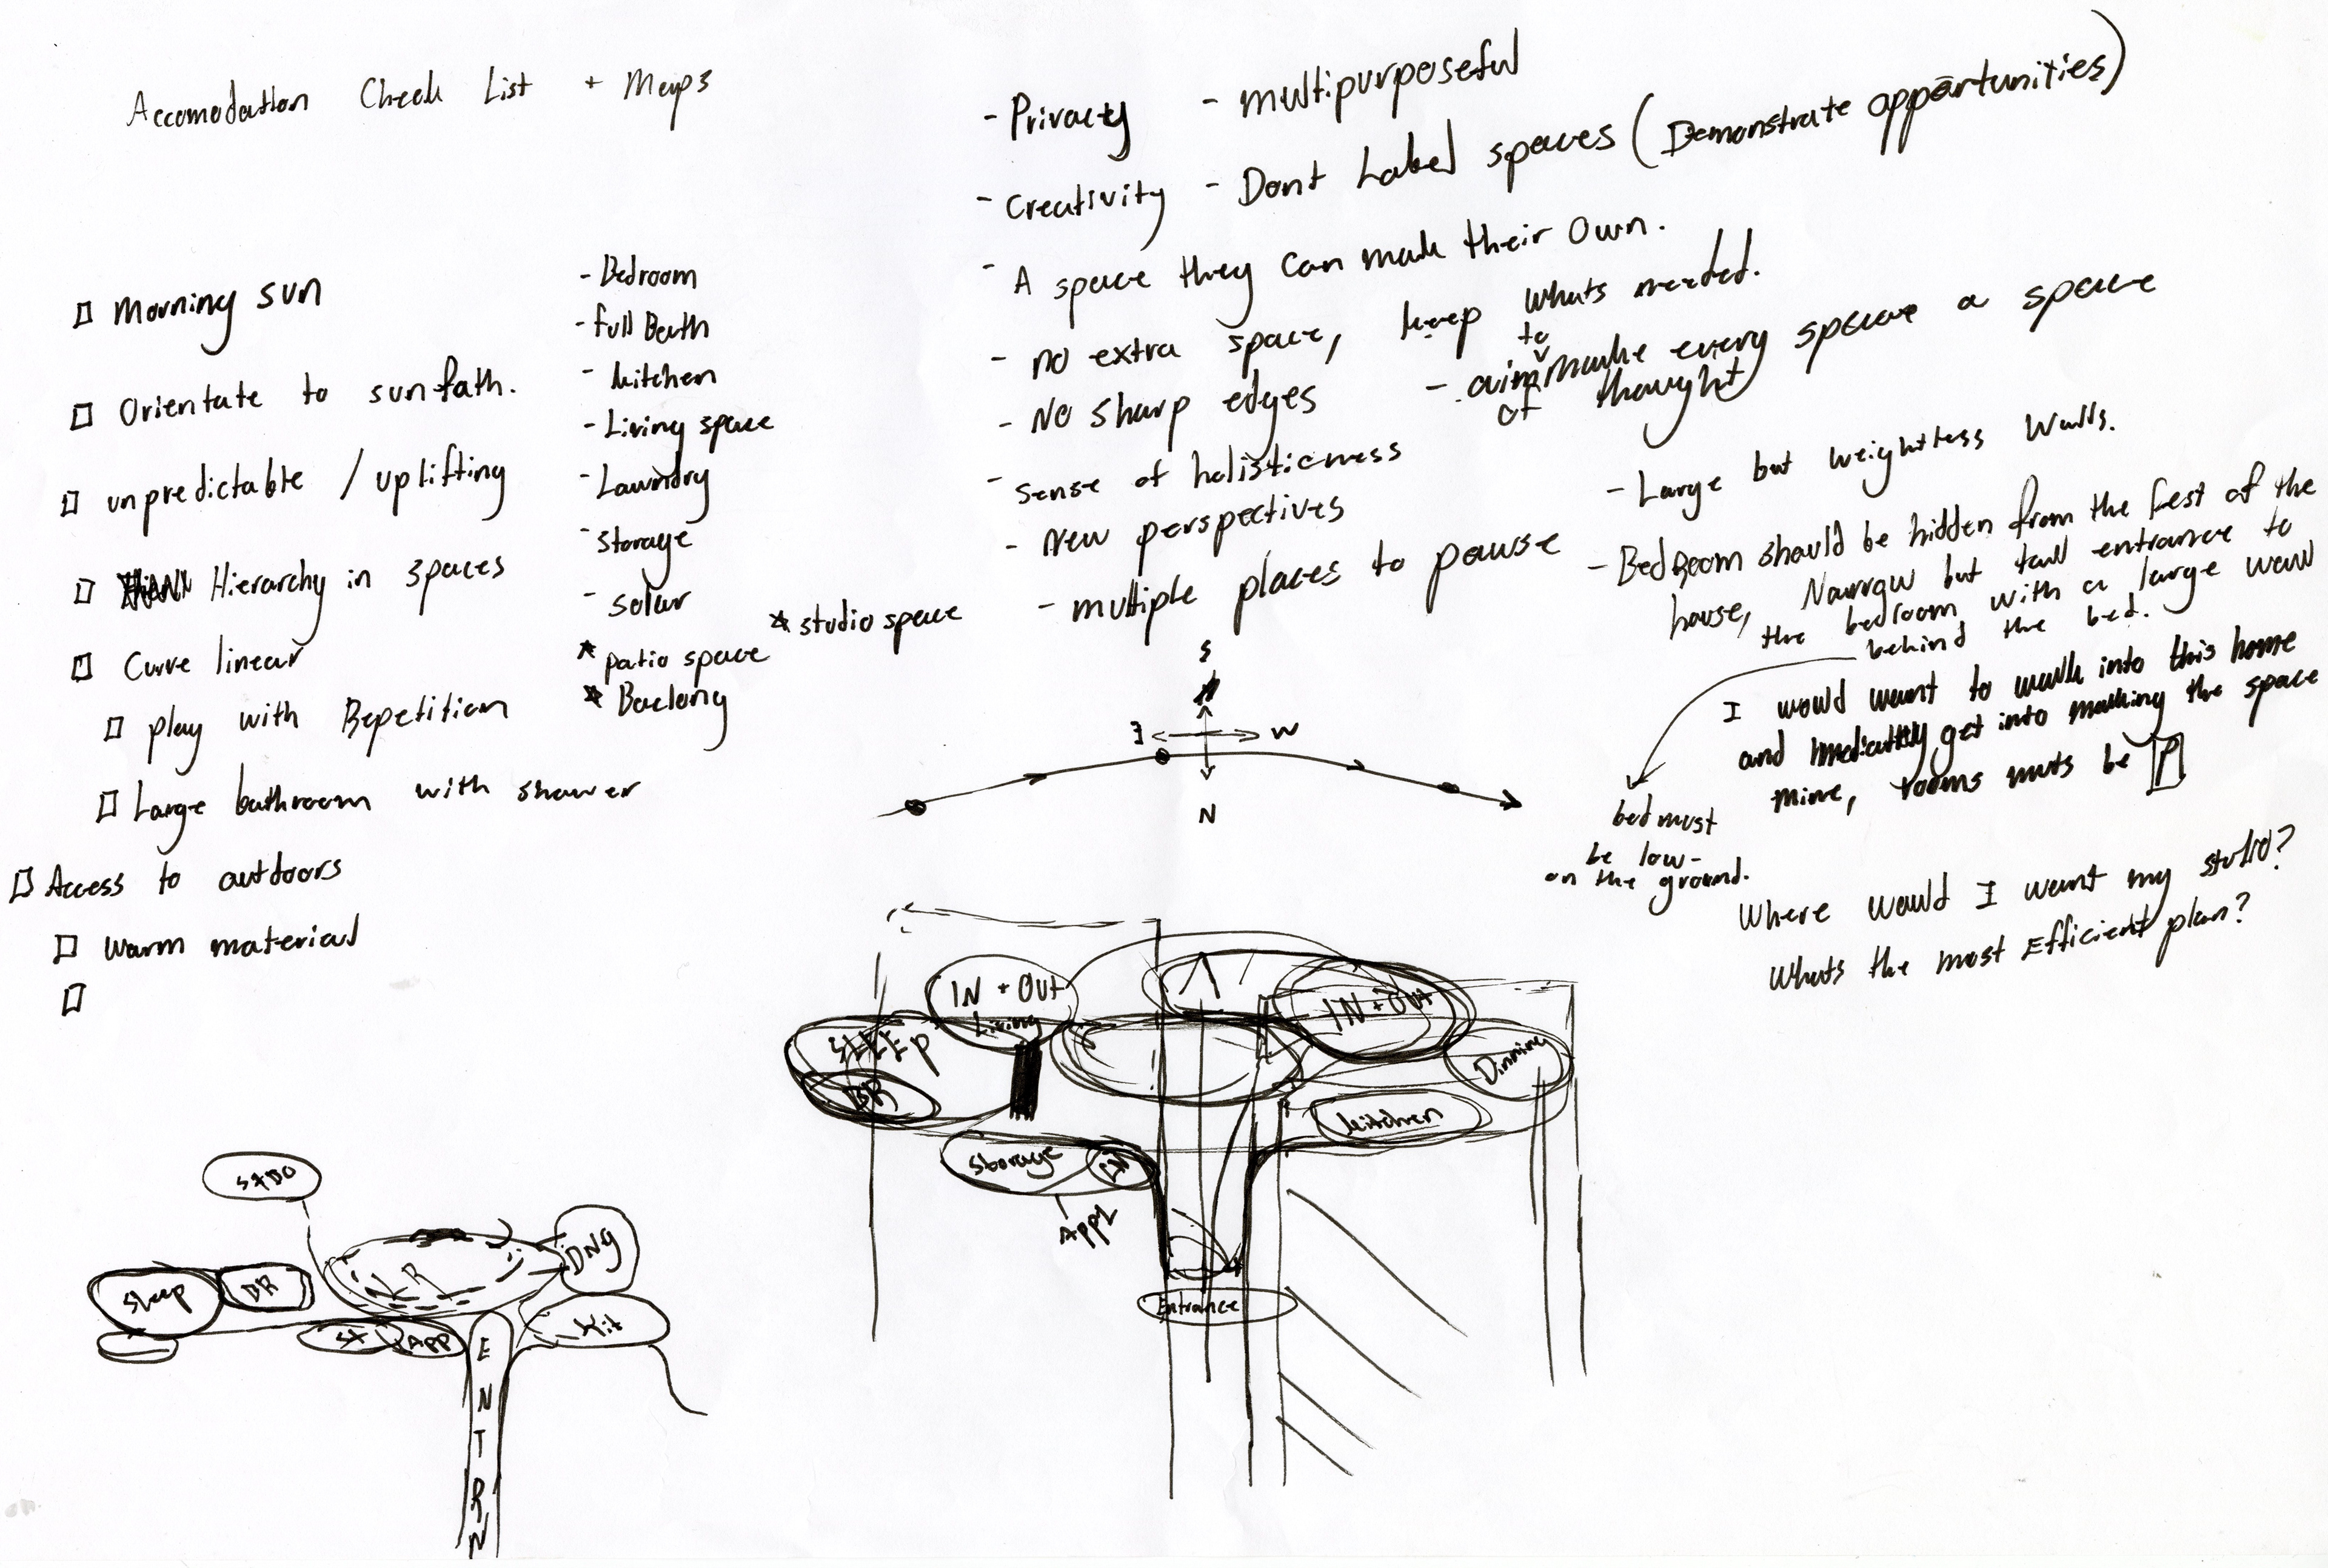 Accomodation Check List + Maps
□ Morning sun
□ Orientate to sun path.
□ unpredictable / uplifting
□ Hierarchy in spaces
□ Curve linear
□ play with Repetition
□ Large bathroom with shower
□ Access to outdoors
□ warm material
□
- Bedroom
- full Bath
- kitchen
- Living space
- Laundry
- storage
- solar
* patio space
* studio space
* Baclony
- Privacy
- Creativity
- A space they can make their own.
- no extra space, keep whats needed.
- No sharp edges
- sense of holisticness
- New perspectives
- multiple places to pause
- multipurposeful
- Dont Label spaces (Demonstrate opportunities)
- aim to make every space a space
of thought
- Large but weightless walls.
- Bedroom should be hidden from the rest of the
house, Narrow but tall entrance to
the bedroom with a large wall
behind the bed.
bed must
be low-
on the ground.
I would want to walk into this home
and immediatly get into making the space
mine, rooms muts be P
Where would I want my studio?
Whats the most Efficient plan?
S
E W
N
IN + Out
Living
IN + Out
SLEEp
BR
Dinning
kitchen
storage
APPL
Entrance
STDO
Sleep
BR
LR
DNG
ST
APP
Kit
ENTRN